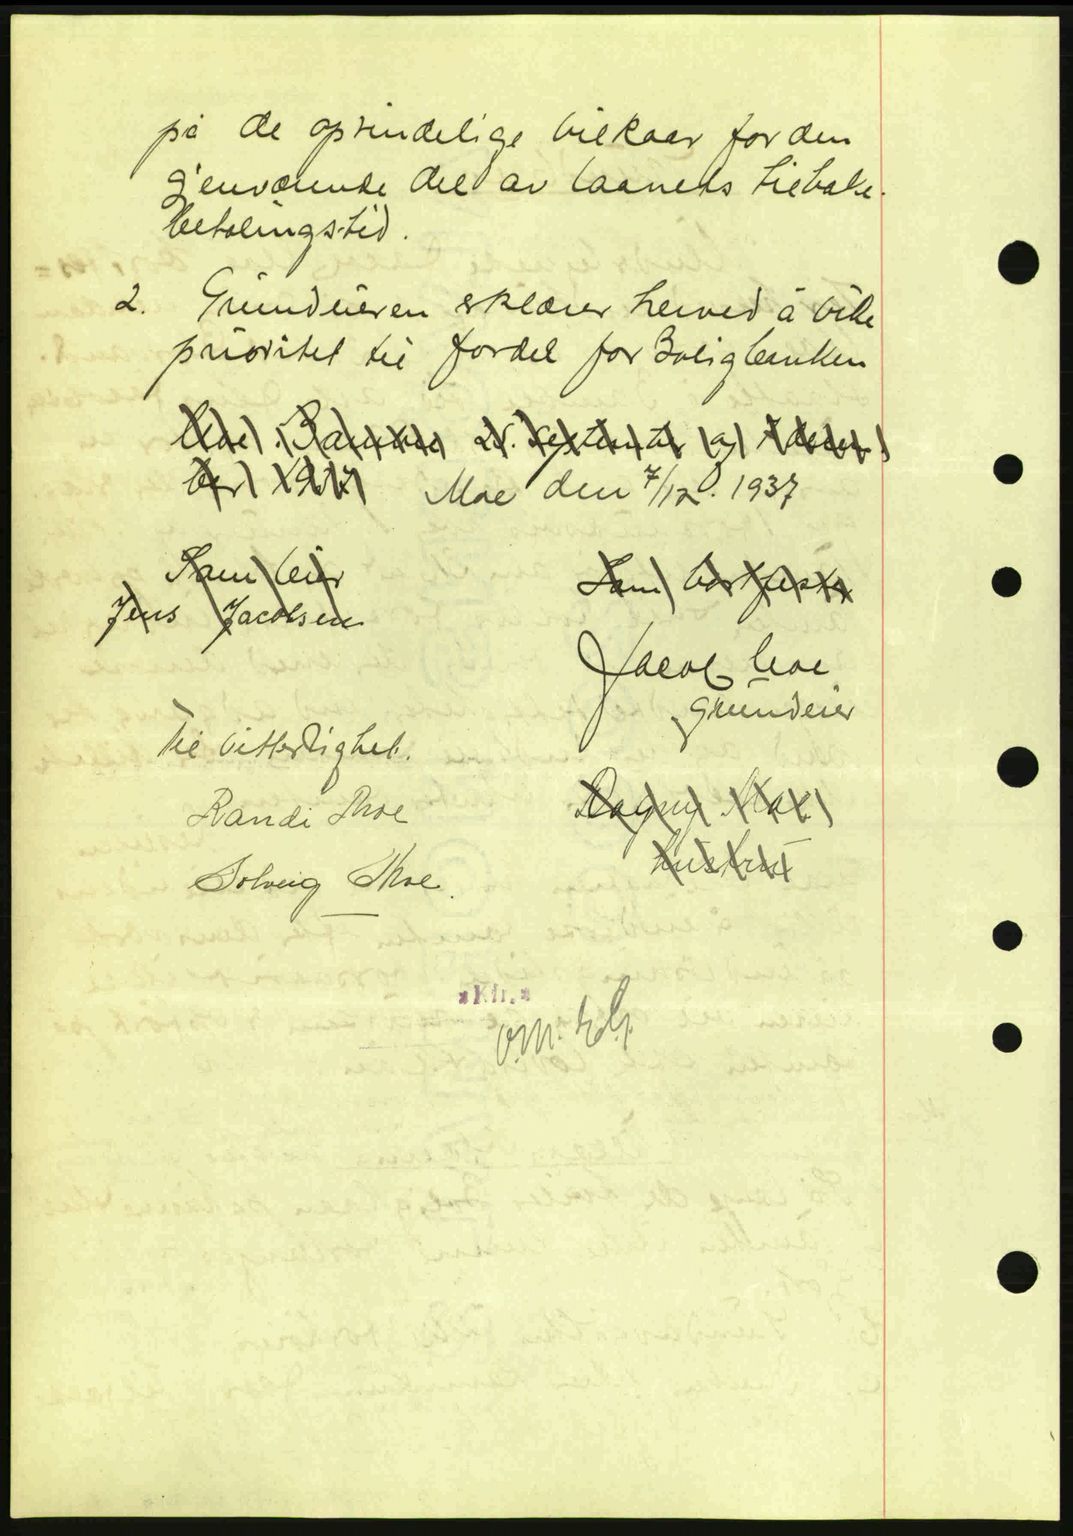 på de oprindelige vilkaar for den
gjenværende del av laanets tilbake-
betalingstid.
2. Grundeieren erklærer herved å vike
prioritet til fordel for Boligbanken
Moe den 7/12. 1937
Som eier
Som bortfester
Jens Jacobsen
Jacob Moe
grundeier
Til vitterlighet.
Randi Moe
Dagny Moe
hustru
Solveig Moe.
*Kfr.*